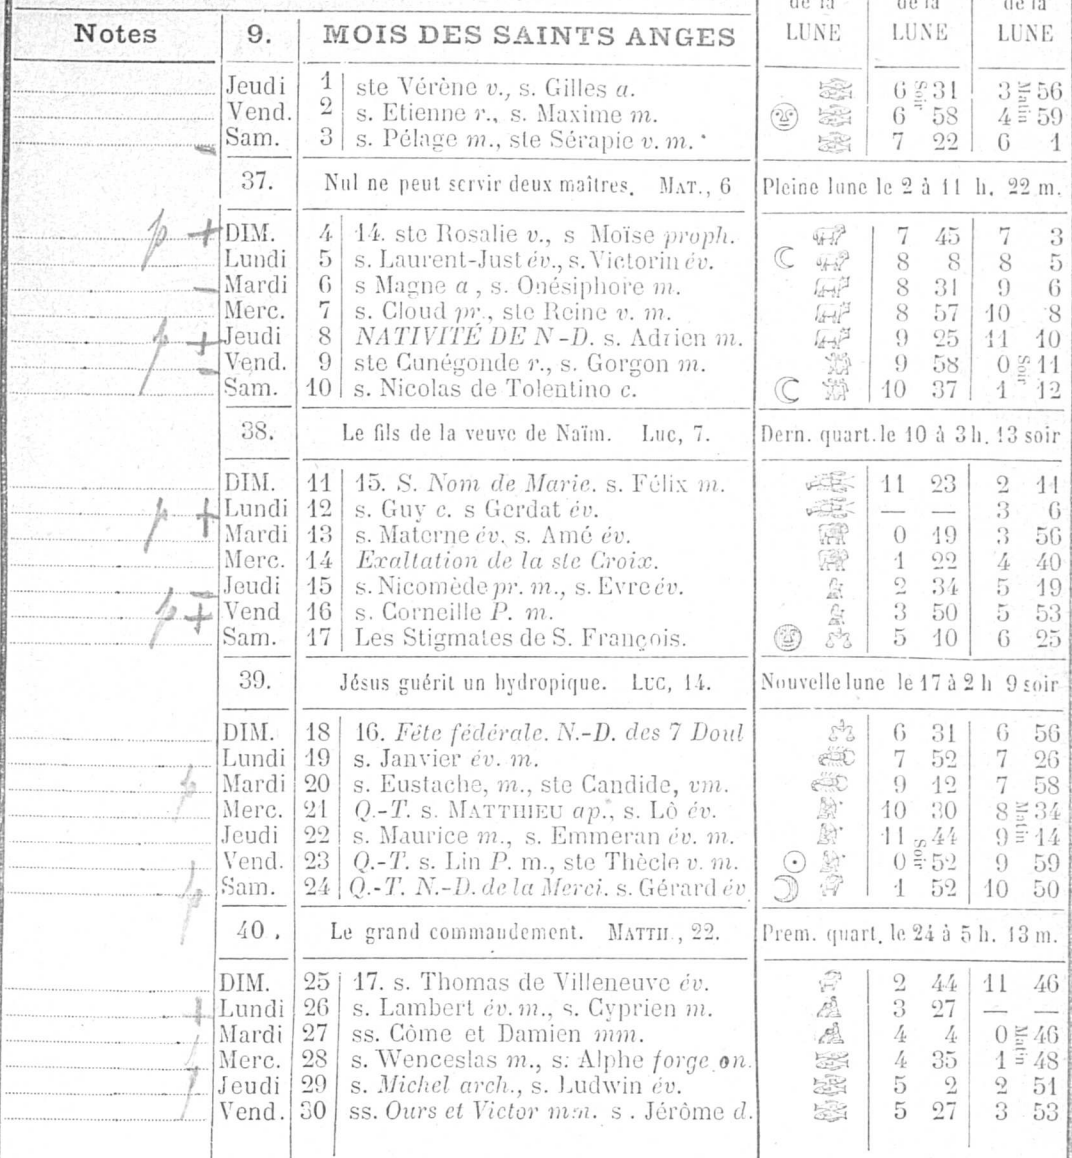 de la de la de la
Notes 9. MOIS DES SAINTS ANGES LUNE LUNE LUNE
Jeudi 1 ste Vérène v., s. Gilles a. 6 Soir 31 3 Matin 56
Vend. 2 s. Etienne r., s. Maxime m. 6 58 4 59
Sam. 3 s. Pélage m., ste Sérapie v. m. 7 22 6 1
37. Nul ne peut servir deux maîtres. MAT., 6 Pleine lune le 2 à 11 h. 22 m.
p + DIM. 4 14. ste Rosalie v., s Moïse proph. 7 45 7 3
Lundi 5 s. Laurent-Just év., s. Victorin év. 8 8 8 5
Mardi 6 s Magne a , s. Onésiphore m. 8 31 9 6
Merc. 7 s. Cloud pr., ste Reine v. m. 8 57 10 8
p + Jeudi 8 NATIVITÉ DE N-D. s. Adrien m. 9 25 11 10
Vend. 9 ste Cunégonde r., s. Gorgon m. 9 58 0 Soir 11
Sam. 10 s. Nicolas de Tolentino c. 10 37 1 12
38. Le fils de la veuve de Naïm. Luc, 7. Dern. quart. le 10 à 3 h. 13 soir
DIM. 11 15. S. Nom de Marie. s. Félix m. 11 23 2 11
p + Lundi 12 s. Guy c. s Gerdat év. — — 3 6
Mardi 13 s. Materne év. s. Amé év. 0 19 3 56
Merc. 14 Exaltation de la ste Croix. 1 22 4 40
Jeudi 15 s. Nicomède pr. m., s. Evre év. 2 34 5 19
p + Vend 16 s. Corneille P. m. 3 50 5 53
Sam. 17 Les Stigmates de S. François. 5 10 6 25
39. Jésus guérit un hydropique. LUC, 14. Nouvelle lune le 17 à 2 h 9 soir
DIM. 18 16. Fête fédérale. N.-D. des 7 Doul 6 31 6 56
Lundi 19 s. Janvier év. m. 7 52 7 26
p Mardi 20 s. Eustache, m., ste Candide, vm. 9 12 7 58
Merc. 21 Q.-T. s. MATTHIEU ap., s. Lô év. 10 30 8 Matin 34
Jeudi 22 s. Maurice m., s. Emmeran év. m. 11 44 9 14
Vend. 23 Q.-T. s. Lin P. m., ste Thècle v. m. 0 Soir 52 9 59
p Sam. 24 Q.-T. N.-D. de la Merci. s. Gérard év 1 52 10 50
40. Le grand commandement. MATTH., 22. Prem. quart. le 24 à 5 h. 13 m.
DIM. 25 17. s. Thomas de Villeneuve év. 2 44 11 46
+ Lundi 26 s. Lambert év. m., s. Cyprien m. 3 27 — —
Mardi 27 ss. Côme et Damien mm. 4 4 0 Matin 46
Merc. 28 s. Wenceslas m., s. Alphe forge on. 4 35 1 48
Jeudi 29 s. Michel arch., s. Ludwin év. 5 2 2 51
Vend. 30 ss. Ours et Victor mm. s. Jérôme d. 5 27 3 53